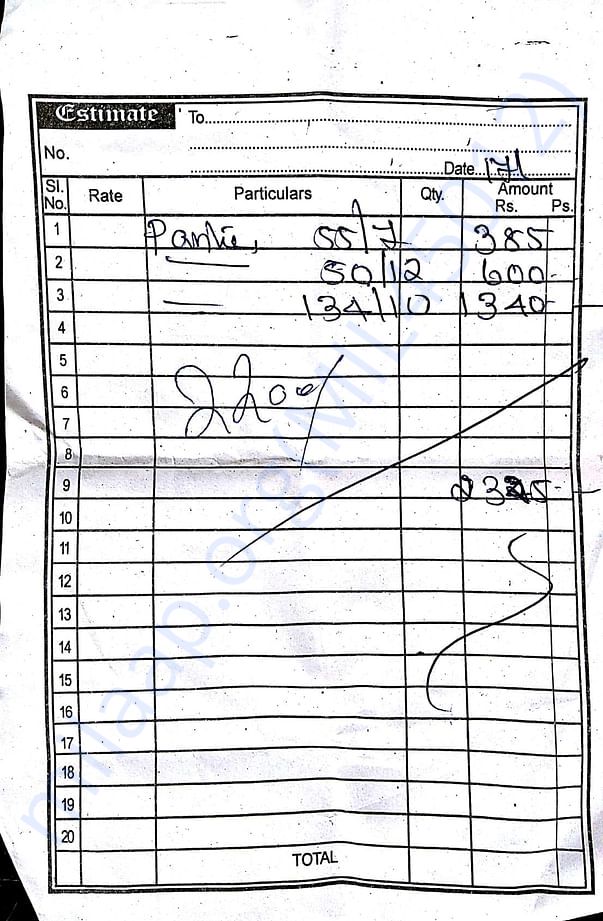 Estimate To
No.
Date. 17/
Sl. No. Rate Particulars Qty. Amount Rs. Ps.
1 55/7 385
2 — 50/12 600-
3 — 134/10 1340-
4
5
6 2200/
7
8
9 2325-
10
11
12
13
14
15
16
17
18
19
20
TOTAL
milaap.org(MIL45012)